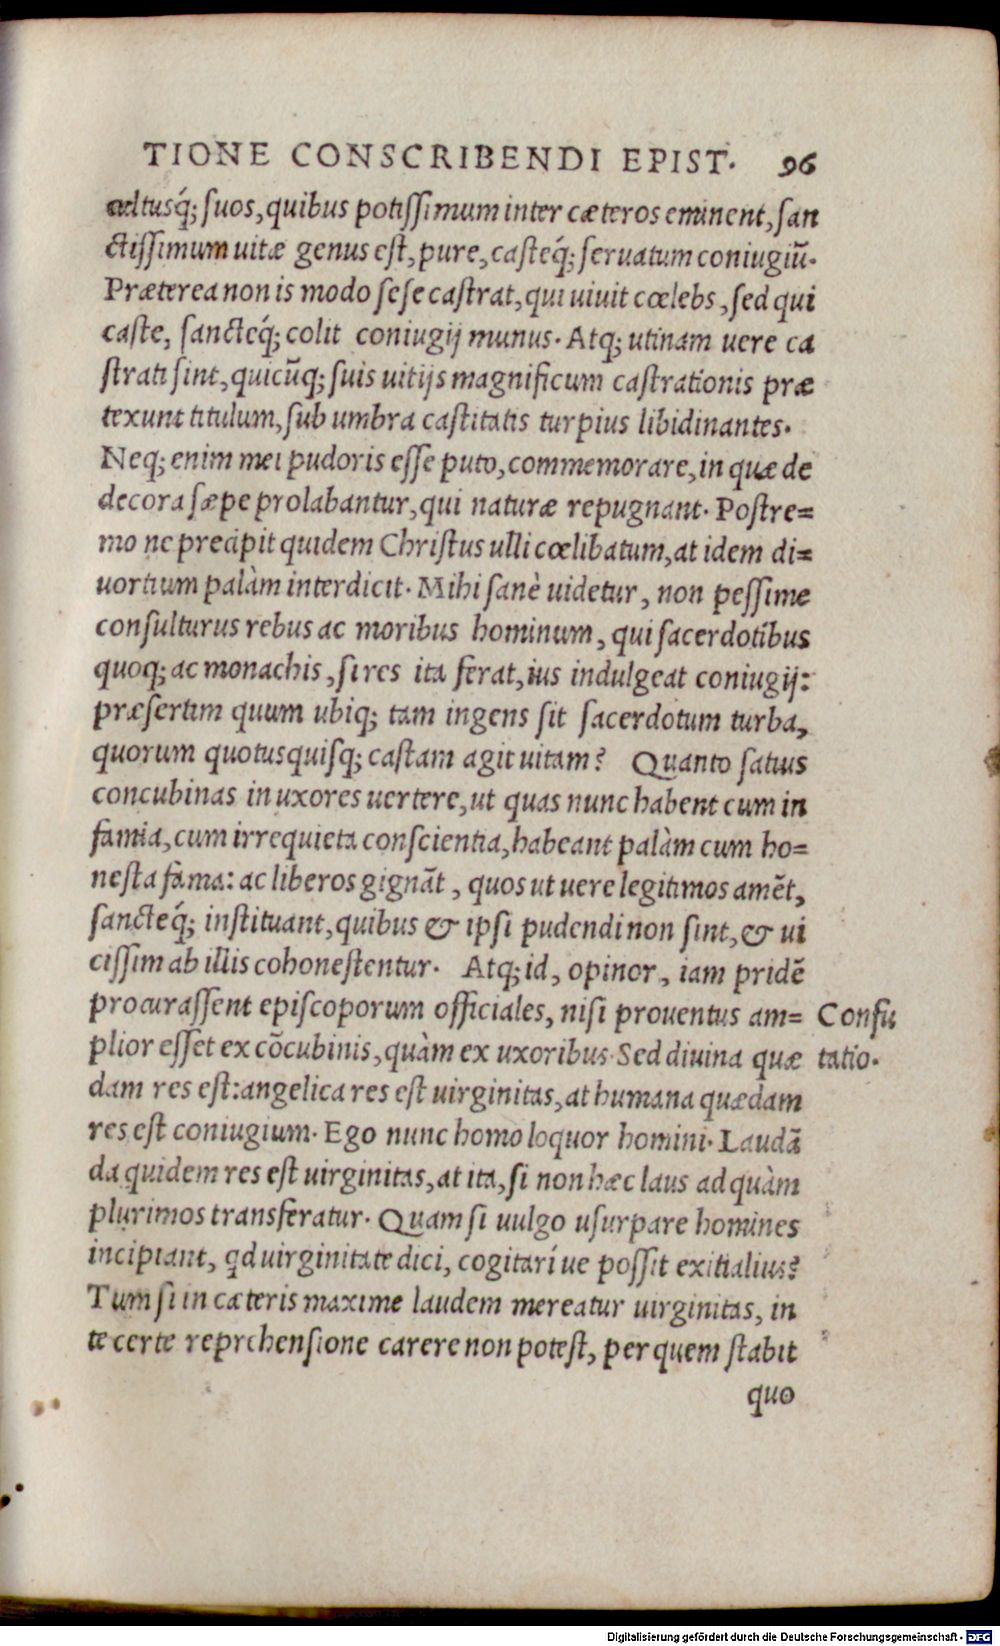 TIONE CONSCRIBENDI EPIST. 96
adtusq́; ſuos, quibus potiſſimum inter cæteros eminent, ſan
ctiſſimum uitæ genus eſt, pure, caſteq́; ſeruatum coniugiū.
Præterea non is modo ſeſe caſtrat, qui uiuit cœlebs, ſed qui
caſte, ſancteq́; colit coniugij munus. Atq; utinam uere ca
ſtrati ſint, quicūq; ſuis uitijs magnificum caſtrationis præ
texunt titulum, ſub umbra caſtitatis turpius libidinantes.
Neq; enim mei pudoris eſſe puto, commemorare, in quæ de
decora ſæpe prolabantur, qui naturæ repugnant. Poſtre=
mo nc precipit quidem Chriſtus ulli cœlibatum, at idem di=
uortium palàm interdicit. Mihi ſanè uidetur, non peſſime
conſulturus rebus ac moribus hominum, qui ſacerdotibus
quoq; ac monachis, ſi res ita ferat, ius indulgeat coniugij:
præſertim quum ubiq; tam ingens ſit ſacerdotum turba,
quorum quotusquiſq; caſtam agit uitam? Quanto ſatius
concubinas in uxores uertere, ut quas nunc habent cum in
famia, cum irrequieta conſcientia, habeant palàm cum ho=
neſta fama: ac liberos gignāt, quos ut uere legitimos amēt,
ſancteq́; inſtituant, quibus & ipſi pudendi non ſint, & ui
ciſſim ab illis cohoneſtentur. Atq; id, opinor, iam pridē
procuraſſent epiſcoporum officiales, niſi prouentus am= Confu
plior eſſet ex cōcubinis, quàm ex uxoribus. Sed diuina quæ tatio.
dam res eſt: angelica res eſt uirginitas, at humana quædam
res eſt coniugium. Ego nunc homo loquor homini. Laudā
da quidem res eſt uirginitas, at ita, ſi non hæc laus ad quàm
plurimos transferatur. Quam ſi uulgo uſurpare homines
incipiant, qd uirginitate dici, cogitari ue poſſit exitialius?
Tum ſi in cæteris maxime laudem mereatur uirginitas, in
te certe reprehenſione carere non poteſt, per quem ſtabit
quo
Digitalisierung gefördert durch die Deutsche Forschungsgemeinschaft - DFG